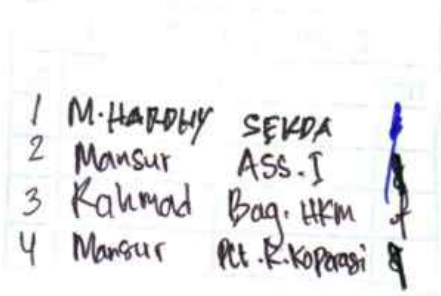 1 M. HARDHY SEKDA
2 Mansur ASS. I
3 Rahmad Bag. HKM
4 Mansur Plt. K. Koperasi